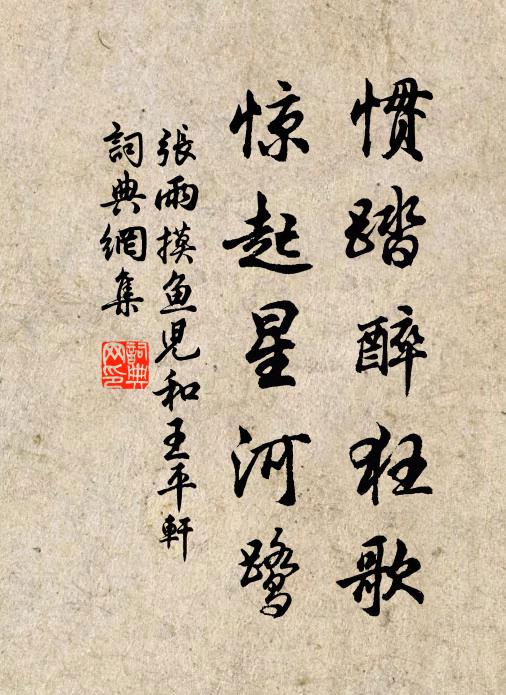 惯踏醉狂歌
惊起星河鹭
張雨摸鱼児和王平軒
詞典網集
詞典
网印